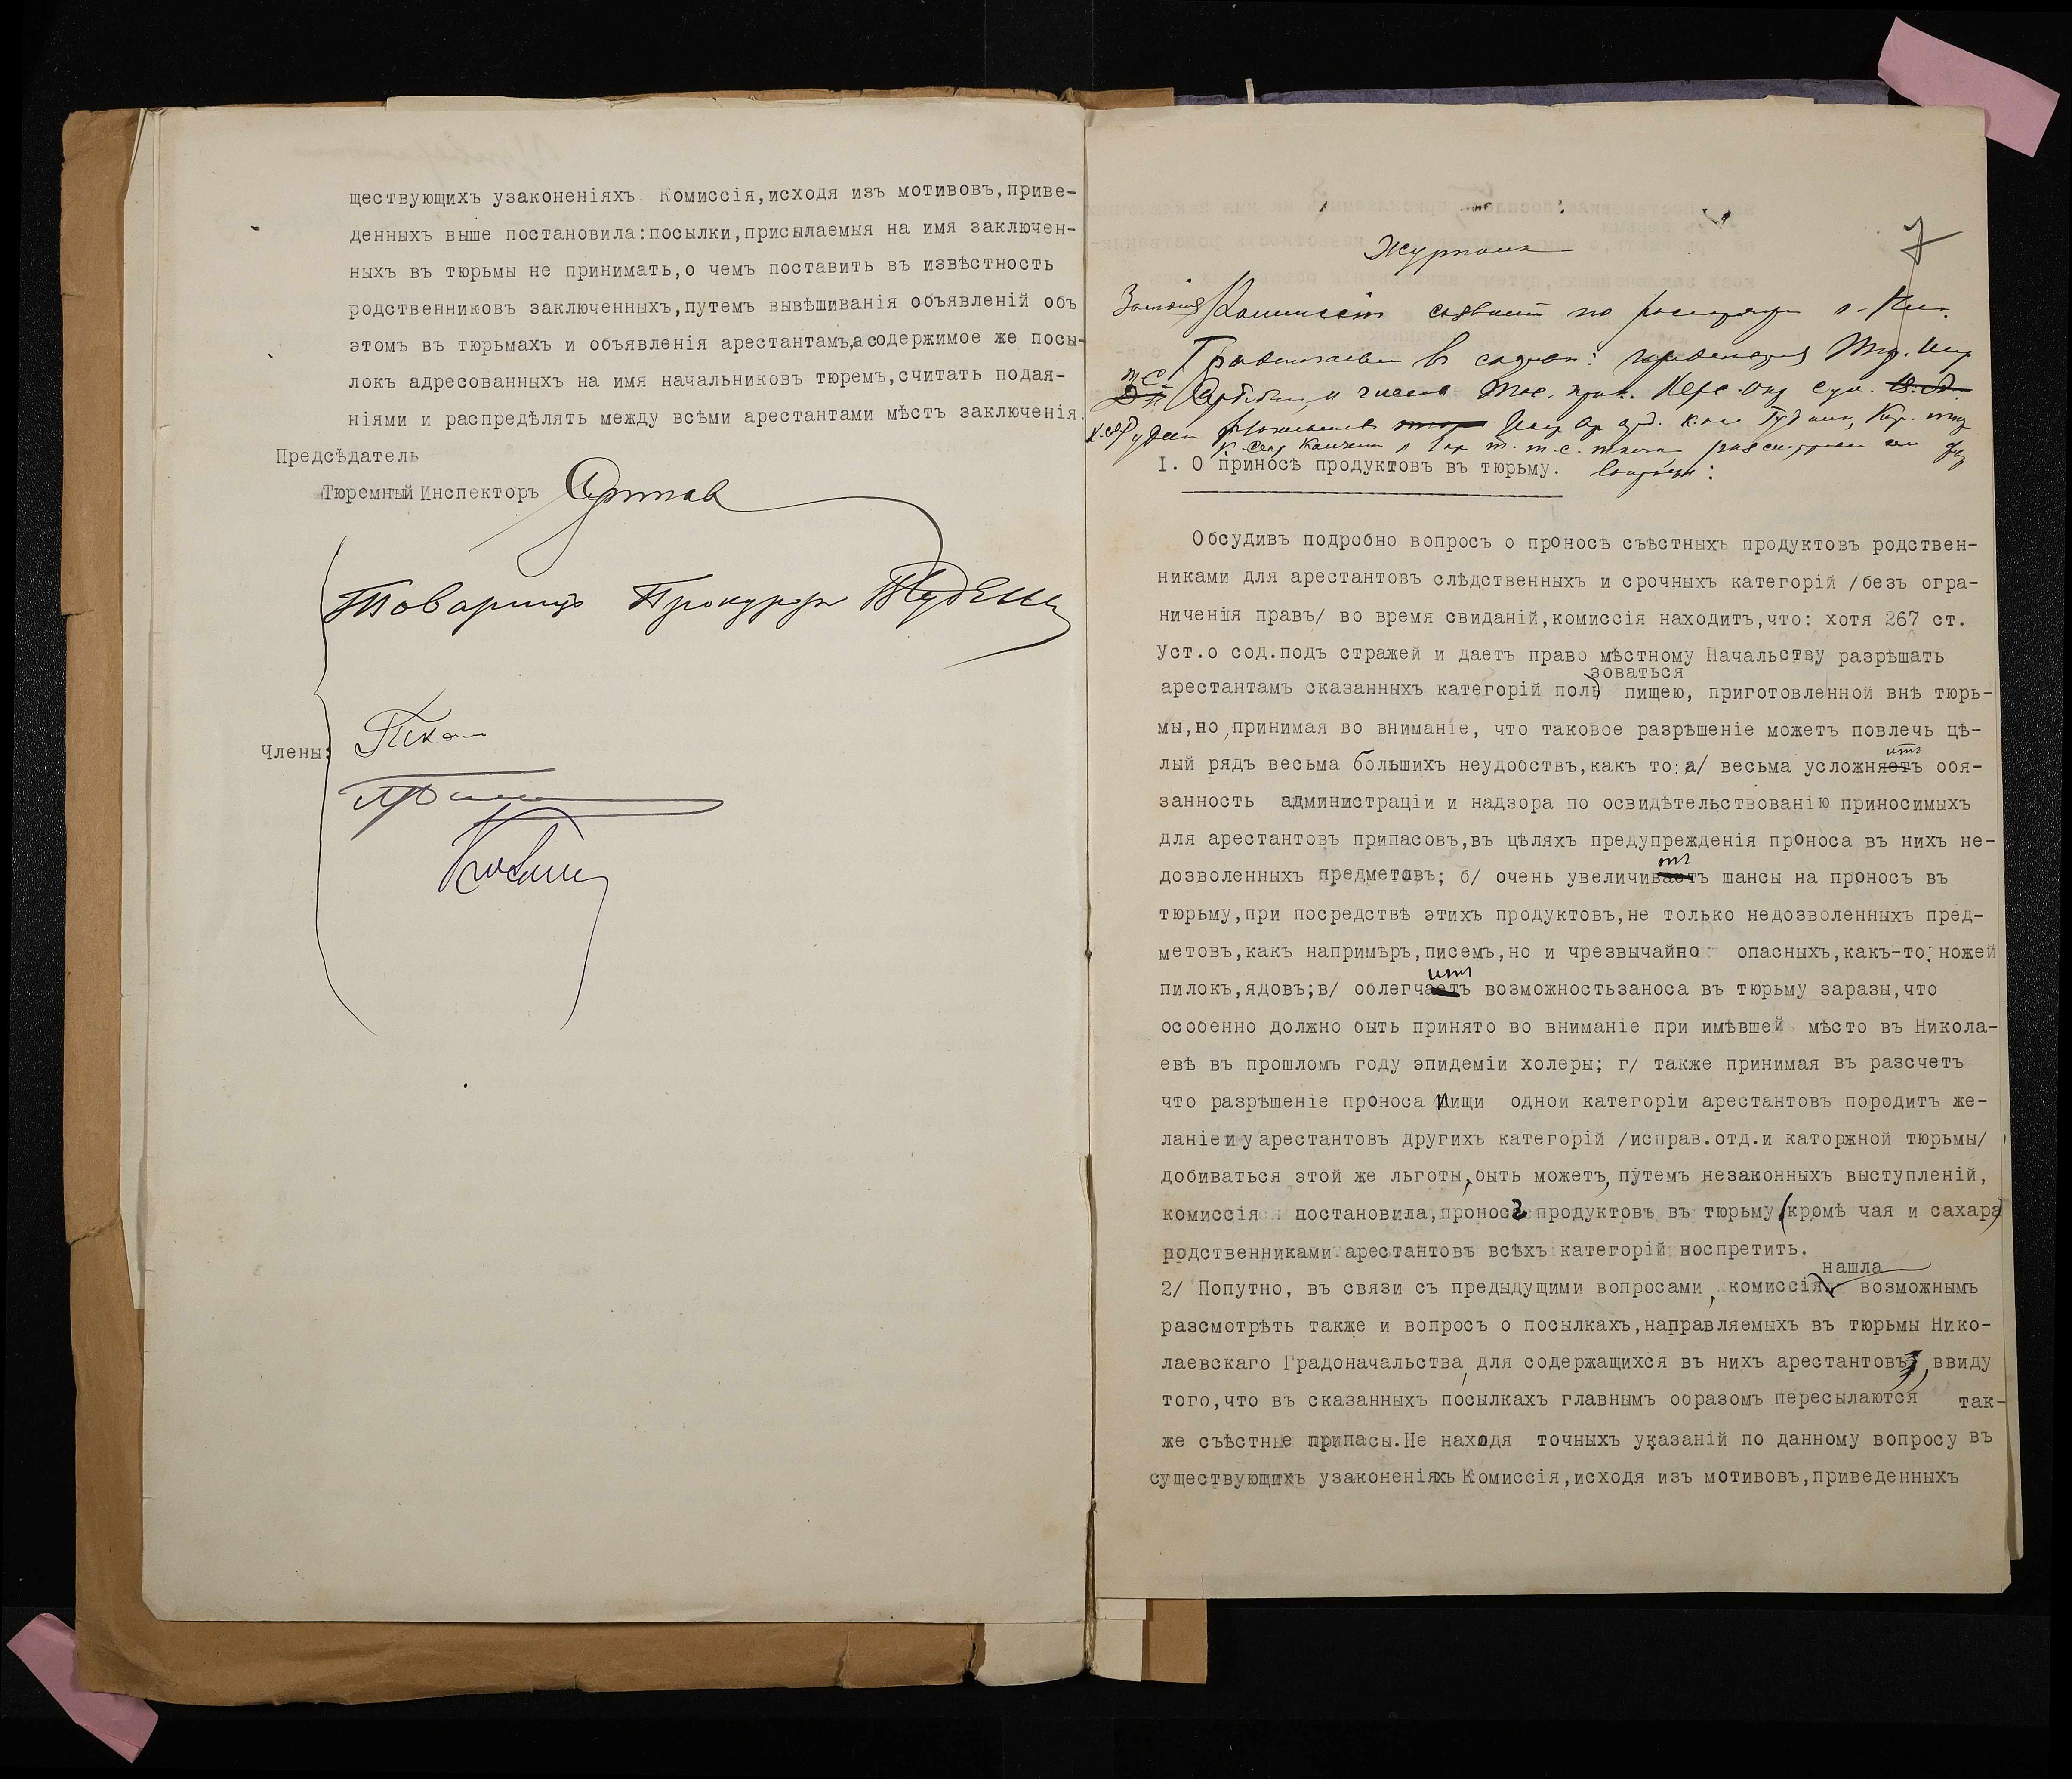 ществующихъ узаконеніяхъ Комиссія,исходя изъ мотивовъ,приве-
денныхъ выше постановила:посылки,присылаемыя на имя заключен-
ныхъ въ тюрьмы не принимать,о чемъ поставить въ извѣстность
родственниковъ заключенныхъ,путемъ вывѣшиванія объявленій объ
этомъ въ тюрьмахъ и объявленія арестантамъ,а содержимое же посы-
локъ адресованныхъ на имя начальниковъ тюремъ,считать подая-
ніями и распредѣлять между всѣми арестантами мѣстъ заключенія.
Предсѣдатель
Тюремный Инспекторъ
Товарищъ Прокурора
Члены:
7
Журналъ
Комиссіи
I. О приносѣ продуктовъ въ тюрьму. вопросы:
Обсудивъ подробно вопросъ о проносѣ съѣстныхъ продуктовъ родствен-
никами для арестантовъ слѣдственныхъ и срочныхъ категорій /безъ огра-
ниченія правъ/ во время свиданій,комиссія находитъ,что: хотя 267 ст.
Уст.о сод.подъ стражей и даетъ право мѣстному Начальству разрѣшать
зоваться
арестантамъ сказанныхъ категорій поль пищею, приготовленной внѣ тюрь-
мы,но,принимая во вниманіе, что таковое разрѣшеніе можетъ повлечь цѣ-
итъ
лый рядъ весьма большихъ неудобствъ,какъ то: а/ весьма усложняетъ обя-
занность администраціи и надзора по освидѣтельствованію приносимыхъ
для арестантовъ припасовъ,въ цѣляхъ предупрежденія проноса въ нихъ не-
тъ
дозволенныхъ предметовъ; б/ очень увеличиваетъ шансы на проносъ въ
тюрьму,при посредствѣ этихъ продуктовъ,не только недозволенныхъ пред-
метовъ,какъ напримѣръ,писемъ,но и чрезвычайно опасныхъ,какъ-то: ножей
итъ
пилокъ,ядовъ;в/ облегчаетъ возможностьзаноса въ тюрьму заразы,что
особенно должно быть принято во вниманіе при имѣвшей мѣсто въ Никола-
евѣ въ прошломъ году эпидеміи холеры; г/ также принимая въ разсчетъ
что разрѣшеніе проноса пищи одной категоріи арестантовъ породитъ же-
ланіе и у арестантовъ другихъ категорій /исправ.отд.и каторжной тюрьмы/
добиваться этой же льготы,быть можетъ, путемъ незаконныхъ выступленій,
комиссія постановила,проносъ продуктовъ въ тюрьму (кромѣ чая и сахара)
родственниками арестантовъ всѣхъ категорій воспретить.
нашла
2/ Попутно, въ связи съ предыдущими вопросами, комиссія возможнымъ
разсмотрѣть также и вопросъ о посылкахъ,направляемыхъ въ тюрьмы Нико-
лаевскаго Градоначальства, для содержащихся въ нихъ арестантовъ, ввиду
того,что въ сказанныхъ посылкахъ главнымъ образомъ пересылаются так-
же съѣстные припасы.Не находя точныхъ указаній по данному вопросу въ
существующихъ узаконеніяхъ Комиссія,исходя изъ мотивовъ,приведенныхъ